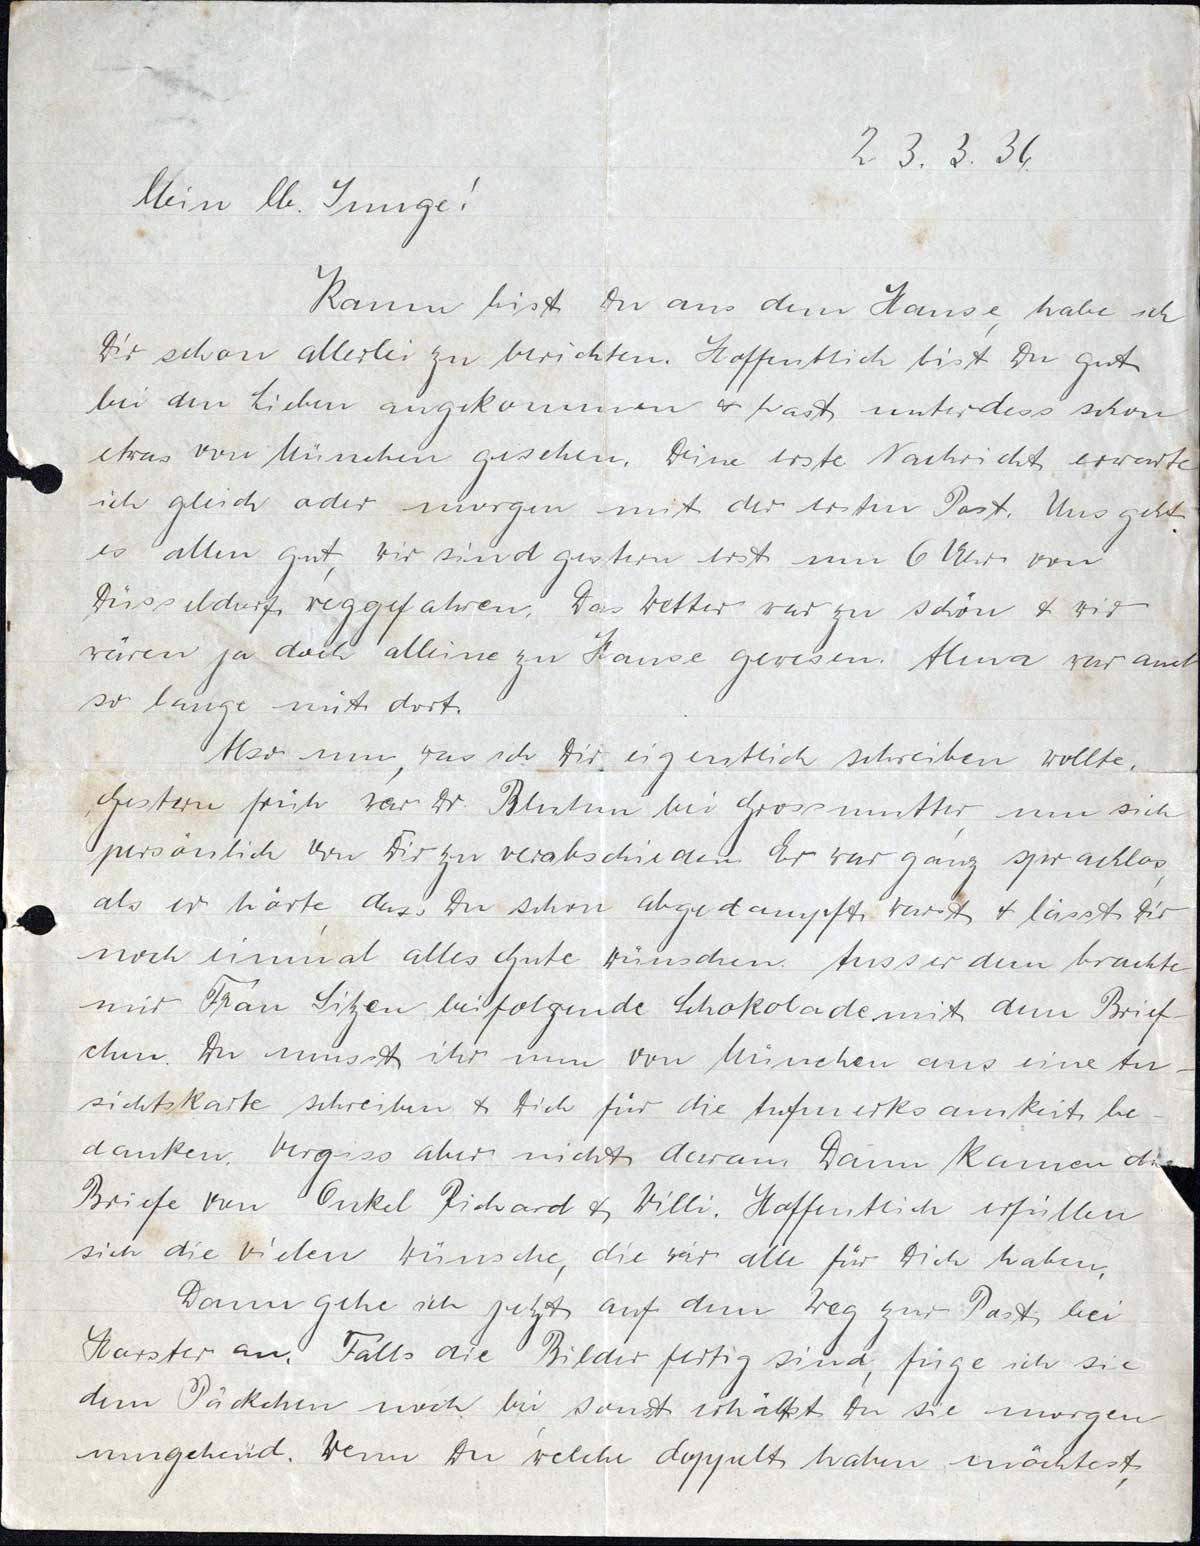 23.3.36.
Mein lb. Junge!
Kaum bist Du aus dem Hause, habe ich
Dir schon allerlei zu berichten. Hoffentlich bist Du gut
bei den Lieben angekommen & hast unterdess schon
etwas von München gesehen. Deine erste Nachricht erwarte
ich gleich oder morgen mit der ersten Post. Uns geht
es allen gut, wir sind gestern erst um 6 Uhr von
Düsseldorf weggefahren. Das Wetter war zu schön & wir
wären ja doch alleine zu Hause gewesen. Alma war auch
so lange mit dort.
Also nun, was ich Dir eigentlich schreiben wollte.
Gestern früh war Dr. bei Grossmutter, um sich
persönlich von Dir zu verabschieden. Er war ganz sprachlos,
als er hörte, dass Du schon abgedampft warst & lässt Dir
noch einmal alles Gute wünschen. Ausserdem brachte
mir Frau Sitzen beifolgende Schokolade mit dem Brief-
chen. Du musst ihr nun von München aus eine An-
sichtskarte schreiben & Dich für die Aufmerksamkeit be-
danken. Vergiss aber nicht daran. Dann kamen die
Briefe von Onkel Richard & Willi. Hoffentlich erfüllen
sich die vielen Wünsche, die wir alle für Dich haben.
Dann gehe ich jetzt auf dem Weg zur Post bei
Harster an. Falls die Bilder fertig sind, füge ich sie
dem Päckchen noch bei, sonst erhältst Du sie morgen
umgehend. Wenn Du welche doppelt haben möchtest,